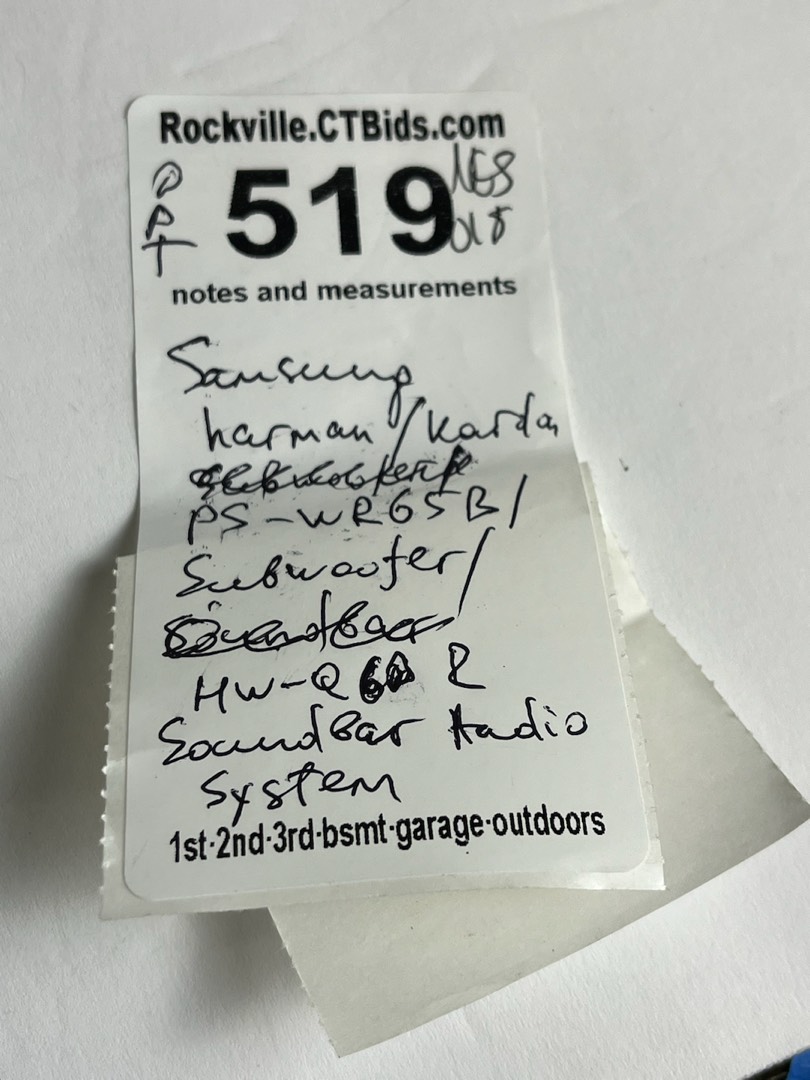 Rockville.CTBids.com
519
notes and measurements
Samsung
harman/Karda
PS-WR65B/
Subwoofer/
HW-Q60R
Soundbar Audio
System
1st·2nd·3rd·bsmt·garage·outdoors